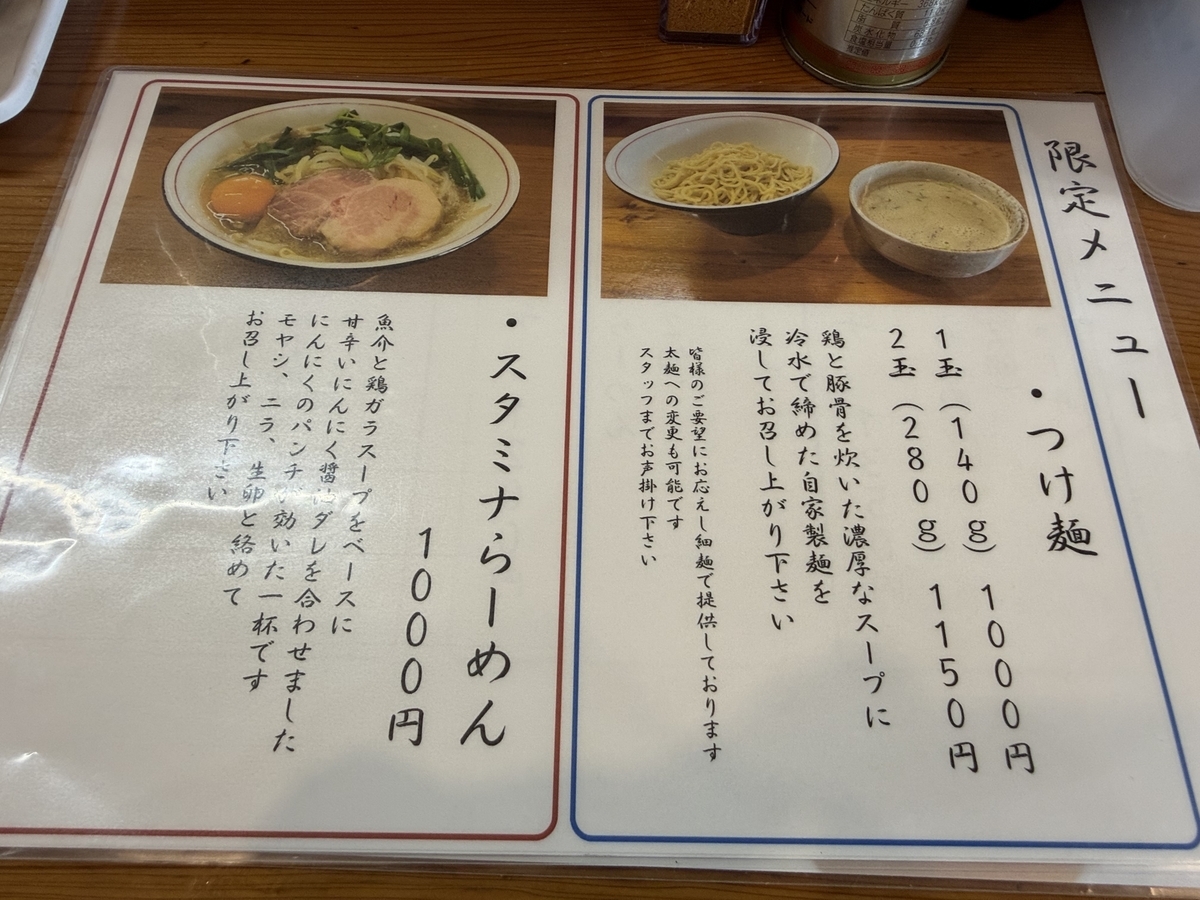 限定メニュー
・つけ麺
1玉（140g） 1000円
2玉（280g） 1150円
鶏と豚骨を炊いた濃厚なスープに
冷水で締めた自家製麺を
浸してお召し上がり下さい
皆様のご要望にお応えし細麺で提供しております
太麺への変更も可能です
スタッフまでお声掛け下さい
・スタミナらーめん
1000円
魚介と鶏ガラスープをベースに
甘辛いにんにく醤油ダレを合わせました
にんにくのパンチが効いた一杯です
モヤシ、ニラ、生卵と絡めて
お召し上がり下さい
たんぱく質
脂質
炭水化物
食塩相当量